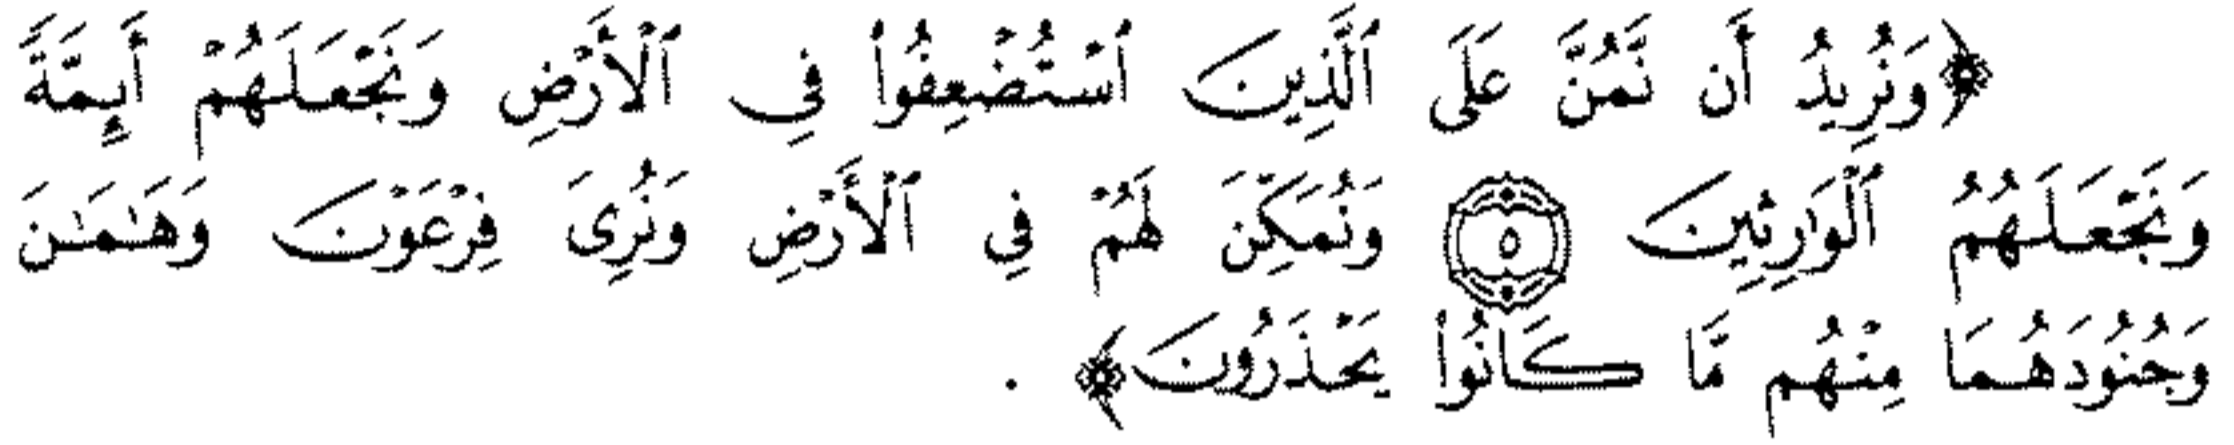 ﴿وَنُرِيدُ أَن نَّمُنَّ عَلَى ٱلَّذِينَ ٱسْتُضْعِفُوا۟ فِى ٱلْأَرْضِ وَنَجْعَلَهُمْ أَئِمَّةً
وَنَجْعَلَهُمُ ٱلْوَٰرِثِينَ ٥ وَنُمَكِّنَ لَهُمْ فِى ٱلْأَرْضِ وَنُرِىَ فِرْعَوْنَ وَهَـٰمَـٰنَ
وَجُنُودَهُمَا مِنْهُم مَّا كَانُوا۟ يَحْذَرُونَ﴾ .